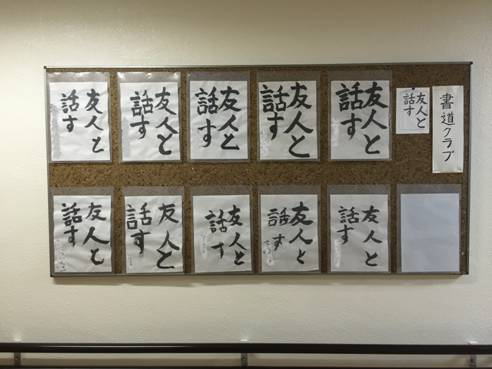 書道クラブ
友人と
話す
友人と
話す
友人と
話す
友人と
話す
友人と
話す
友人と
話す
友人と
話す
友人と
話す
友人と
話す
友人と
話す
友人と
話す